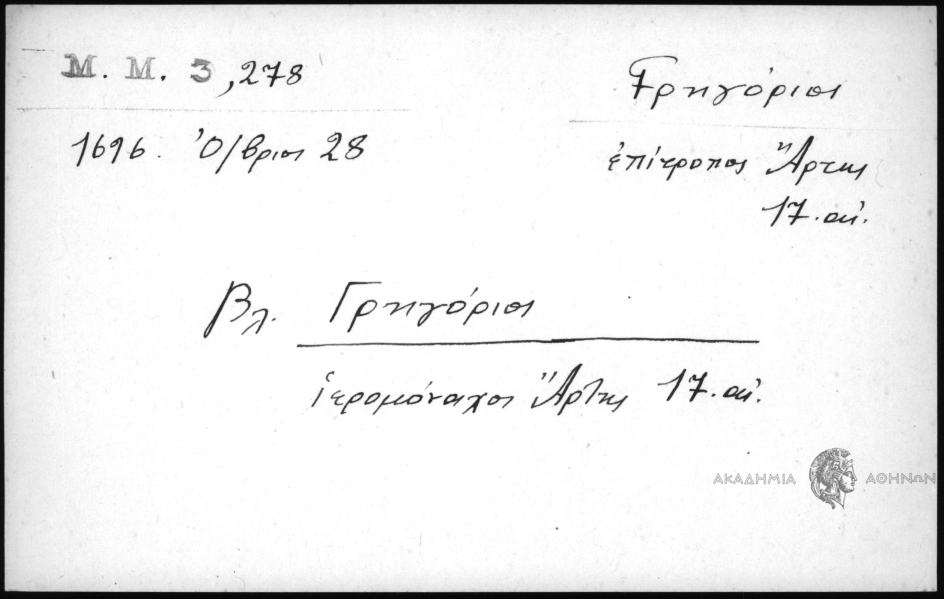 Μ. Μ. 3,278
Γρηγόριος
1696. Ὀ/βριος 28
ἐπίτροπος Ἄρτης
17. αἰ.
Βλ. Γρηγόριος
ἱερομόναχος Ἄρτης 17. αἰ.
ΑΚΑΔΗΜΙΑ ΑΘΗΝΩΝ